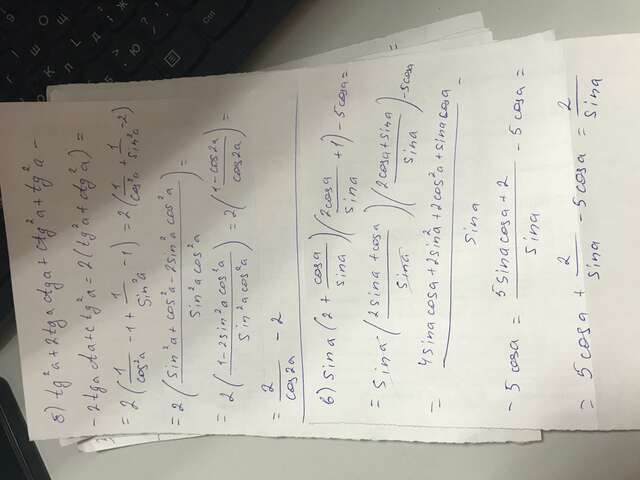 б) tg²a + 2tga ctga + ctg²a + tg²a -
- 2tga ctga + ctg²a = 2(tg²a + ctg²a) =
= 2(1/cos²a - 1 + 1/sin²a - 1) = 2(1/cos²a + 1/sin²a - 2)
= 2((sin²a + cos²a - 2sin²a cos²a)/(sin²a cos²a)) =
= 2((1 - 2sin²a cos²a)/(sin²a cos²a)) = 2((1 - cos2a)/cos2a) =
= 2/cos2a - 2
6) sina(2 + cosa/sina)(2cosa/sina + 1) - 5cosa =
= sina·((2sina + cosa)/sina)((2cosa + sina)/sina) - 5cosa =
= (4sina cosa + 2sin²a + 2cos²a + sina cosa)/sina -
- 5cosa = (5sina cosa + 2)/sina - 5cosa =
= 5cosa + 2/sina - 5cosa = 2/sina